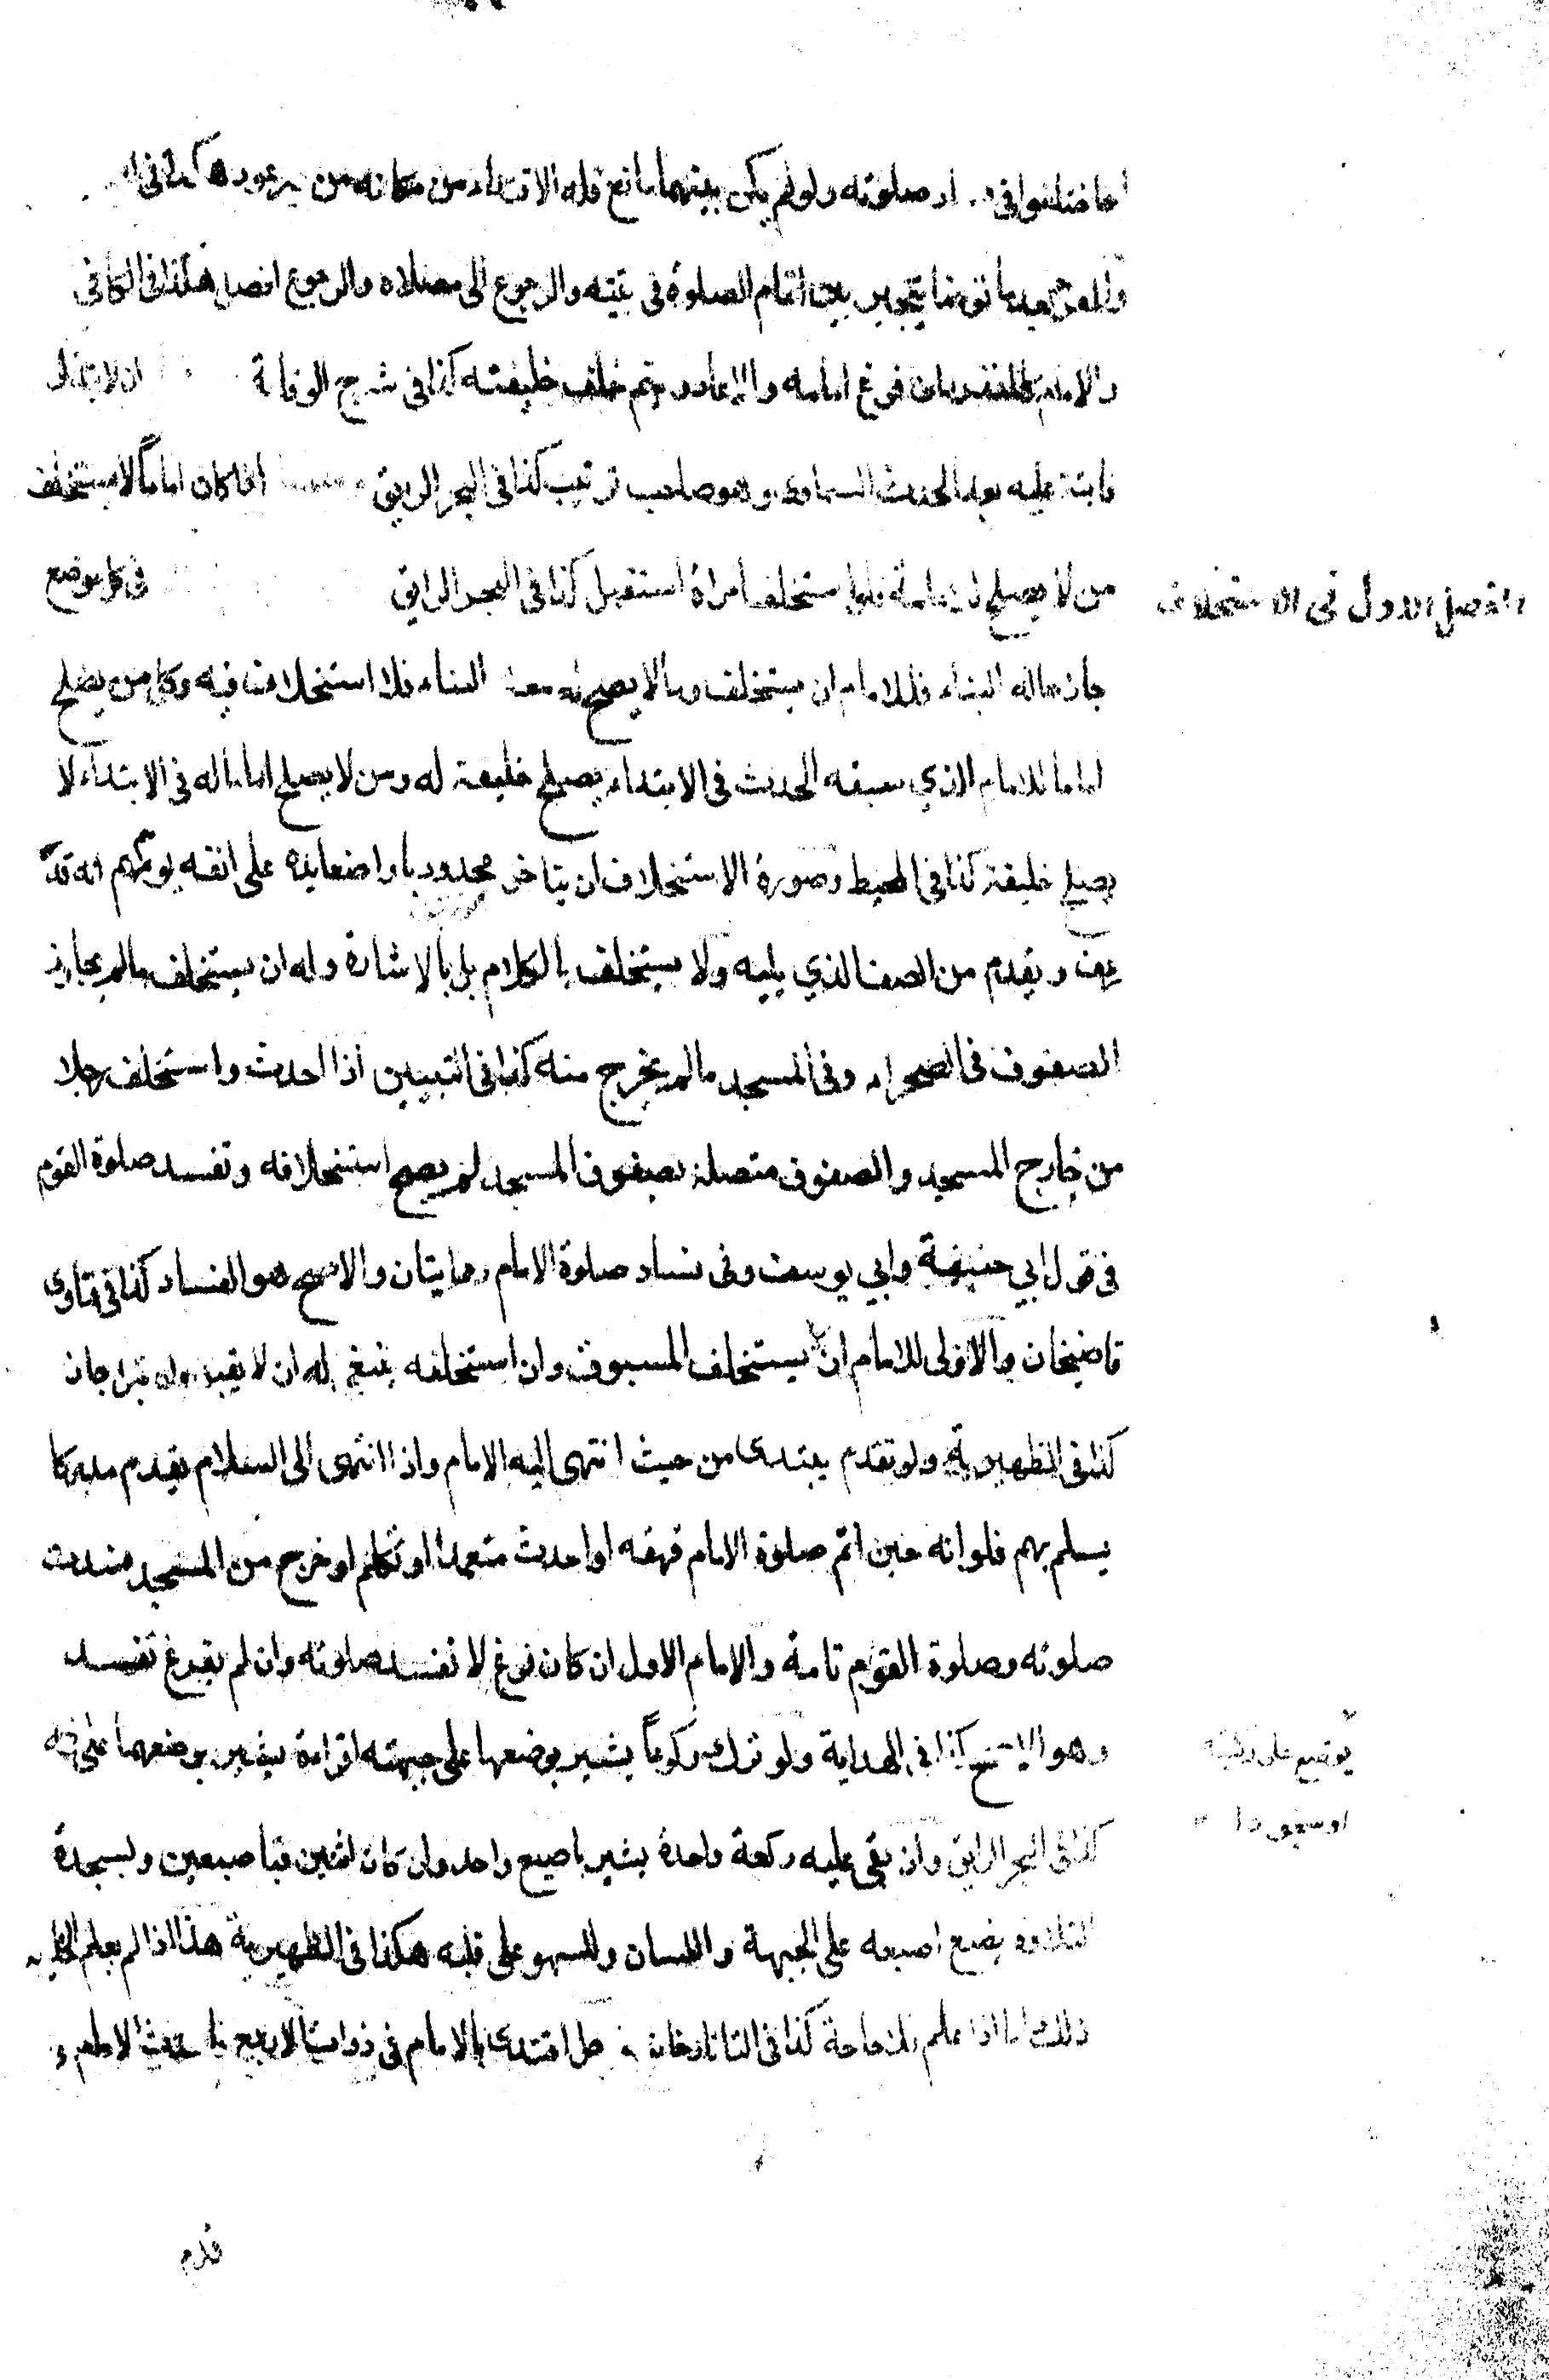 اختلفوا في صلوته ولو لم يكن بينهما مانع فله الاقتداء من مكانه من غير عود هكذا في
بين اتمام الصلوة في بيته والرجوع الى مصلاه والرجوع افضل هكذا في الكافي
والامام كالمنفرد ان فرغ امامه والا عاد ويتم خلف خليفته كذا في شرح الوقاية ان لا يتذكر
فايتة عليه بعد الحدث السماوي وهو صاحب ترتيب كذا في البحر الرايق اذا كان اماماً لا يستخلف
من لا يصلح للامامة فلو استخلف امراة استقبل كذا في البحر الرايق في كل موضع
الفصل الاول في الاستخلاف
جاز له البناء فللامام ان يستخلف وما لا يصح معه البناء فلا استخلاف فيه وكل من يصلح
اماما للامام الذي سبقه الحدث في الابتداء يصلح خليفة له ومن لا يصلح اماما له في الابتداء لا
يصلح خليفة كذا في المحيط وصورة الاستخلاف ان يتاخر محدودبا واضعا يده على انفه يوهم انه قد
رعف ويقدم من الصف الذي يليه ولا يستخلف بالكلام بل بالاشارة وله ان يستخلف ما لم يجاوز
الصفوف في الصحراء وفي المسجد ما لم يخرج منه كذا في التبيين اذا احدث واستخلف رجلا
من خارج المسجد والصفوف متصلة بصفوف المسجد لم يصح استخلافه وتفسد صلوة القوم
في قول ابي حنيفة وابي يوسف وفي فساد صلوة الامام روايتان والاصح هو الفساد كذا في فتاوى
قاضيخان والاولى للامام ان لا يستخلف المسبوق وان استخلفه ينبغي له ان لا يقبل وان قبل جاز
كذا في الظهيرية ولو تقدم يبتدى من حيث انتهى اليه الامام واذا انتهى الى السلام يقدم مدركا
يسلم بهم فلو انه حين اتم صلوة الامام قهقه او احدث متعمدا او تكلم او خرج من المسجد فسدت
صلوته وصلوة القوم تامة والامام الاول ان كان فرغ لا تفسد صلوته وان لم يفرغ تفسد
وهو الاصح كذا في الهداية ولو ترك ركوعاً يشير بوضعها على جبهته او قراءة يشير بوضعها على فمه
يوضع على ركبته
او سجودا
كذا في البحر الرايق وان بقي عليه ركعة واحدة يشير باصبع واحد وان كان اثنين فباصبعين ولسجدة
التلاوة يضع اصبعه على الجبهة واللسان وللسهو على قلبه هكذا في الظهيرية هذا اذا لم يعلم الخليفة
ذلك اما اذا علم فلا حاجة كذا في التاتارخانية رجل اقتدى بالامام في ذوات الاربع فاحدث الامام و
قدم